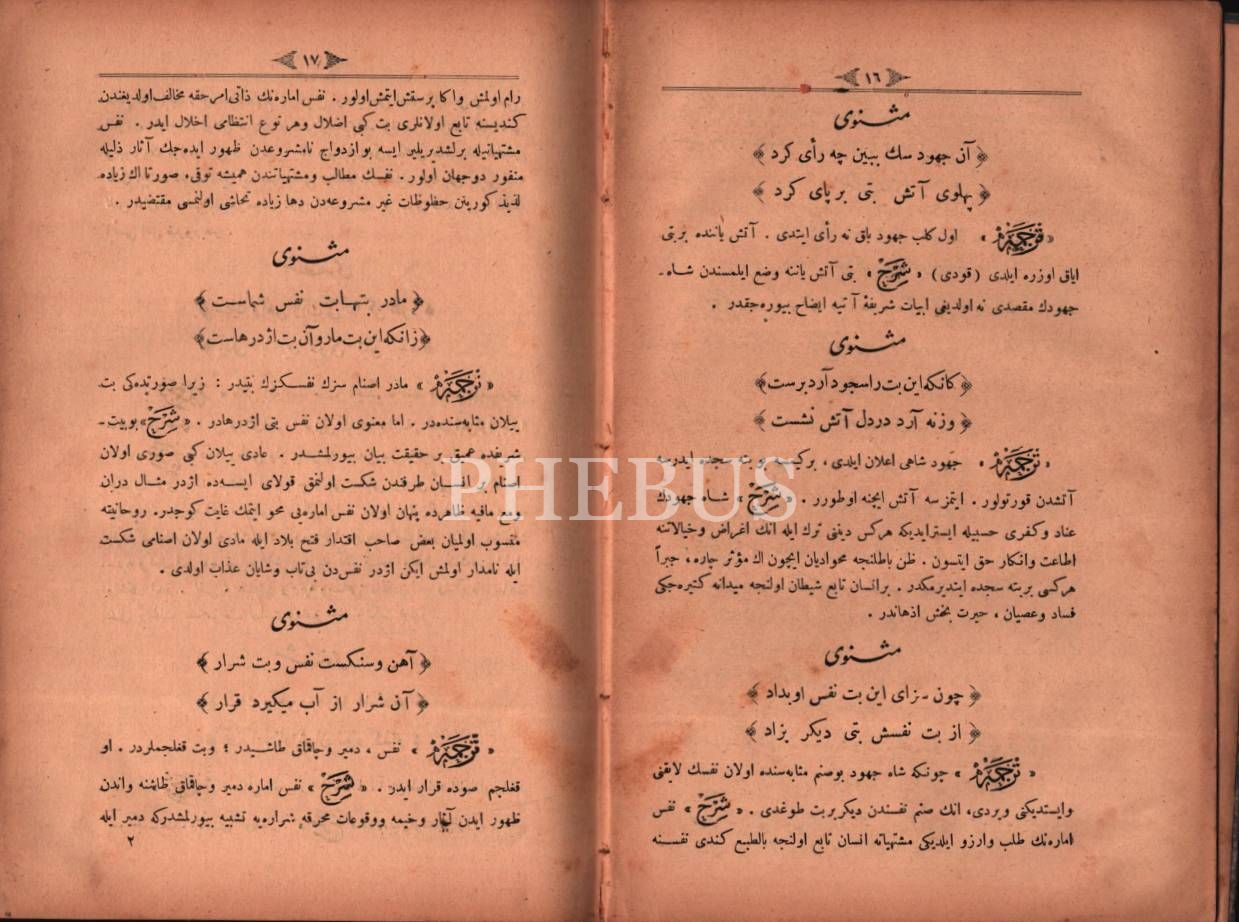 ١٦
مثنوی
﴿ آن جهود سك ببین چه رأی کرد ﴾
﴿ پهلوی آتش بتی بر پای کرد ﴾
« ترجمه » اول کلب جهود باق نه رأی ایتدی . آتش یاننده بر بتی
ایاق اوزره ایلدی (قودی) « شرح » بتی آتش یاننه وضع ایلمسندن شاه ـ
جهودك مقصدی نه اولدیغی ابیات شریفۀ آتیه ایضاح بیوره‌جقدر .
مثنوی
﴿ کانکه این بت را سجود آرد برست ﴾
﴿ ورنه آرد در دل آتش نشست ﴾
« ترجمه » جهود شاهی اعلان ایلدی ، بر کیمسه بو بته سجده ایدرسه
آتشدن قورتولور . ایتمزسه آتش ایچنه اوطورر . « شرح » شاه جهودك
عناد و کفری حسبیله ایستر ایدیکه هرکس دینی ترك ایله انك اغراض و خیالاتنه
اطاعت و انکار حق ایتسون . ظن باطلنجه محو ادیان ایچون اك مؤثر چاره ، جبراً
هرکسی بر بته سجده ایتدیرمکدر . بر انسان تابع شیطان اولنجه میدانه کتیره‌جکی
فساد و عصیان ، حیرت بخش اذهاندر .
مثنوی
﴿ چون سزای این بت نفس او بداد ﴾
﴿ از بت نفسش بتی دیکر بزاد ﴾
« ترجمه » چونکه شاه جهود بو صنم مثابه‌سنده اولان نفسك لایقنی
و ایستدیکنی ویردی، انك صنم نفسندن دیکر بر بت طوغدی . « شرح » نفس
اماره‌نك طلب و ارزو ایلدیکی مشتهیاته انسان تابع اولنجه بالطبع کندی نفسنه
١٧
رام اولمش و اکا پرستش ایتمش اولور . نفس اماره‌نك ذاتی امر حقه مخالف اولدیغندن
کندیسنه تابع اولانلری بت کبی اضلال و هر نوع انتظامی اخلال ایدر . نفس
مشتهیاتیله برلشدیریلیر ایسه بو ازدواج نامشروعدن ظهور ایده‌جك آثار ذلیله
منفور دو جهان اولور . نفسك مطالب و مشتهیاتندن همیشه توقی، صورتا اك زیاده
لذیذ کورینن حظوظات غیر مشروعه‌دن دها زیاده تحاشی اولنمسی مقتضیدر .
مثنوی
﴿ مادر بتهابت نفس شماست ﴾
﴿ زانکه این بت مار و آن بت اژدرهاست ﴾
« ترجمه » مادر اصنام سزك نفسکزك بتیدر : زیرا صورتده‌کی بت
ییلان مثابه‌سنده‌در . اما معنوی اولان نفس بتی اژدرهادر . « شرح » بو بیت ـ
شریفده عمیق بر حقیقت بیان بیورلمشدر . عادی ییلان کبی صوری اولان
اصنام بر انسان طرفندن شکست اولنمق قولای ایسه‌ده اژدر مثال دران
ومع مافیه ظاهرده پنهان اولان نفس اماره‌یی محو ایتمك غایت کوجدر. روحانیته
منسوب اولمیان بعض صاحب اقتدار فتح بلاد ایله مادی اولان اصنامی شکست
ایله نامدار اولمش ایکن اژدر نفس‌دن بی‌تاب و شایان عذاب اولدی .
مثنوی
﴿ آهن و سنکست نفس و بت شرار ﴾
﴿ آن شرار از آب میکیرد قرار ﴾
« ترجمه » نفس ، دمیر و چاقماق طاشیدر ؛ و بت قغلجملردر . او
قغلجم صوده قرار ایدر . « شرح » نفس اماره دمیر و چاقماق طاشنه و اندن
ظهور ایدن آثار وخیمه و وقوعات محرقه شراره‌یه تشبیه بیورلمشدرکه دمیر ایله
٢
PHEBUS